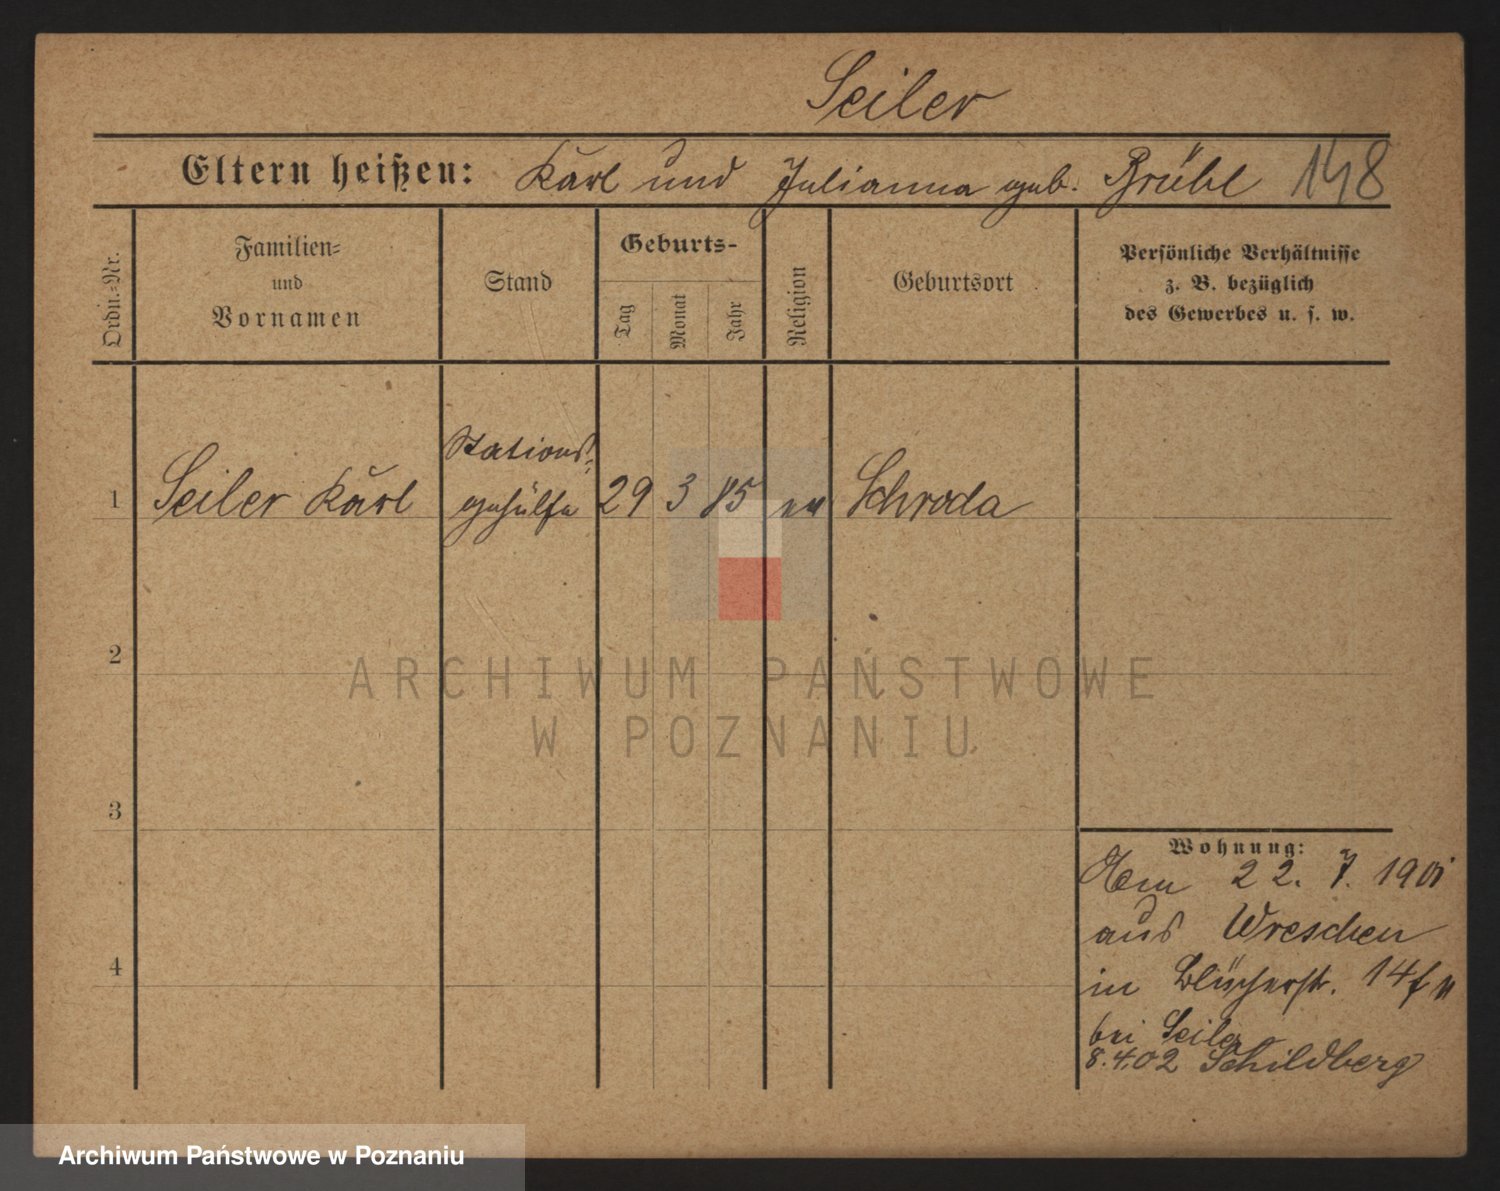 Seiler
Eltern heißen: Karl und Julianna geb. Brühl 148
Ordn.=Nr.
Familien=
und
Vornamen
Stand
Geburts-
Tag
Monat
Jahr
Religion
Geburtsort
Persönliche Verhältnisse
z. B. bezüglich
des Gewerbes u. s. w.
1 Seiler Karl
Stations=
gehülfe
29 3 85 ev Schroda
2
3
4
Wohnung:
22. 7. 1901
aus Wreschen
in Blücherstr. 14
bei Seiler
8.4.02 Schildberg
ARCHIWUM PAŃSTWOWE
W POZNANIU
Archiwum Państwowe w Poznaniu